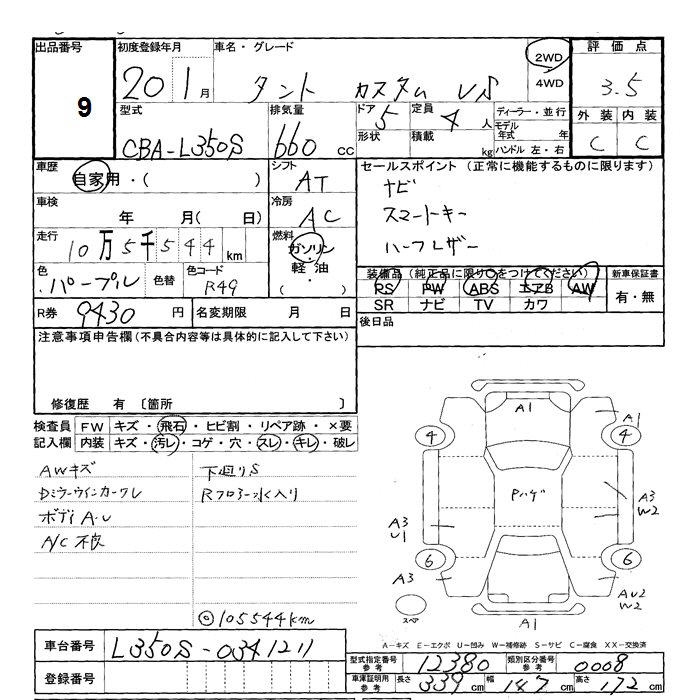 出品番号 初度登録年月 車名・グレード 2WD 4WD 評価点
9 20 1月 タント カスタム VS 3.5
型式 排気量 ドア 定員 ディーラー・並行 外装 内装
CBA-L350S 660 cc 5 4 人 モデル年式 年 C C
形状 積載 kg ハンドル 左・右
車歴 シフト セールスポイント (正常に機能するものに限ります)
自家用・( ) AT ナビ
車検 冷房 スマートキー
年 月( 日) AC ハーフレザー
走行 燃料
10万5千544 km ガソリン・軽油・( )
色 色替 色コード 装備品(純正品に限り○をつけてください) 新車保証書
パープル R49 RS PW ABS エアB AW 有・無
SR ナビ TV カワ
R券 9430 円 名変期限 月 日 後日品
注意事項申告欄(不具合内容等は具体的に記入して下さい)
修復歴 有 〔箇所 〕
検査員 FW キズ・飛石・ヒビ割・リペア跡・×要
記入欄 内装 キズ・汚レ・コゲ・穴・スレ・キレ・破レ
AWキズ 下廻りS
Dミラーウインカーワレ Rフロアー水入り
ボディA・U
A/C不良
◎105544km
A1
4 4 A1
Pハゲ
A3 W2
A3 U1
6 6
A3 AU2 W2
スペア A1
A-キズ E-エクボ U-凹み W-補修跡 S-サビ C-腐食 XX-交換済
車台番号 L350S-0341211
登録番号
型式指定番号 参考 12380 類別区分番号 参考 0008
車庫証明用 参考 長さ 339 cm 幅 147 cm 高さ 172 cm